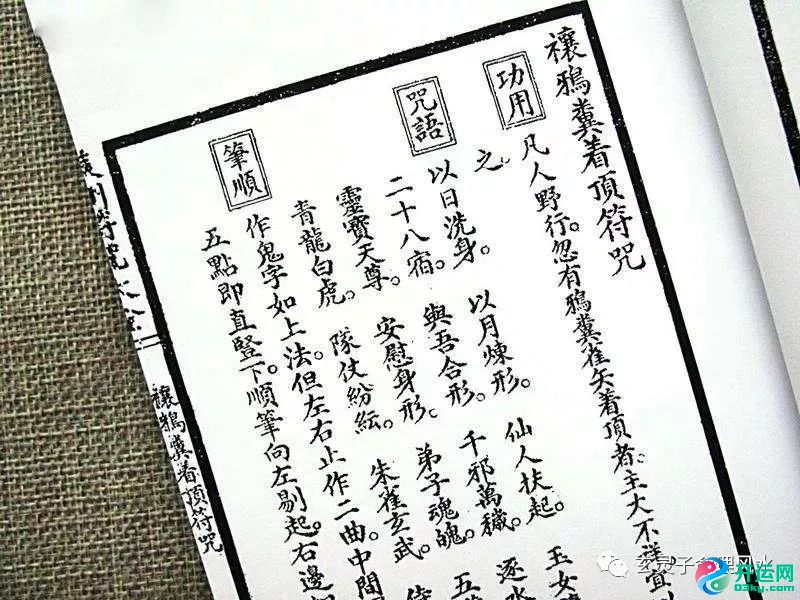 禳鴉糞着頂符咒
功用
凡人野行。忽有鴉糞雀矢着頂者。主大不祥宜
之
咒語
以日洗身。 以月煉形。 仙人扶起。 玉女
二十八宿。 與吾合形。 千邪萬穢。 逐水
靈寶天尊。 安慰身形。 弟子魂魄。 五
青龍白虎。 隊仗紛紜。 朱雀玄武。 侍
筆順
作鬼字如上法。但左右止作二曲。中間
五點即直豎下。順筆向左剔起。右邊
符咒大全
禳鴉糞着頂符咒
玄灵子命理风水
开运网
OZSKY.COM